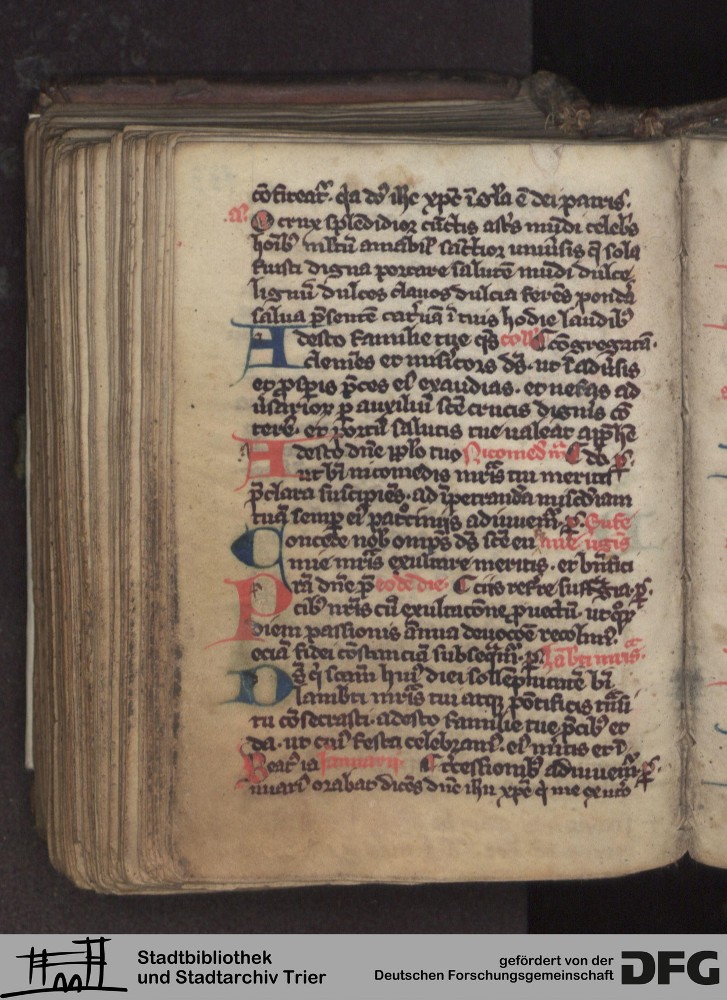 cōfiteat᷑. q̄a dn̄s ihc xp̄c ī gl̄a ē dei patris.
a᷑. O crux splēdidior cūctis astꝭ mūdi celebꝭ
hoīb᷒ mltū amabil᷒ sāctior uniūsis q̄ sola
fuisti digna portare salutē mūdi dulce
lignū dulces clauos dulcia ferēs pondā
salua p̄sentē cat᷑uā ī tuis hodie laudib᷒
Adesto familie tue q̄s coll᷑ cōgregatā.
clemēs et misic̄ors ds̄. ut ī adūsis
et pꝛosꝑis p̄ces eꝰ exaudias. et nefas ad
ūsarioꝝ ꝑ auxiliū sc̄e crucis dignis cō
tere. et portū salutis tue ualeat app̄hē
Adesto dn̄e pplo tuo Nicomedī m᷑ de. ꝑ.
ut bī nicomedis mr̄is tui merita
p̄clara suscipiēs. ad īpetrandā mis̄cdiam
tuā semꝑ eiꝰ pat᷑ciniis adiuuem᷑. ꝑ. Eufe
Concede nob̄ omp̄s ds̄ sc̄e eu mie ūginis
mie mr̄is exultare meritis. et bn̄fici
rā dn̄e p̄ eodē die. C
Pcib᷒ nr̄is cū exultatōne ꝓuectū. ut q̄ꝝ
diem passionis ānua deuocōe recolim᷒.
eciā fidei cōstanciā subseq̄m᷑. ꝑ. Lābti mr̄is.
Ds̄ q̄ sc̄am huiꝰ diei sollēpnitatē bī
lambti mr̄is tui atq; pōtificis
tu cōsecrasti. adesto familie tue p̄cib᷒ et
da. ut cuiꝰ festa celebram᷒. eiꝰ mitis et ī
Beat᷒ ia Januarii. C t᷑cessionib᷒ adiuuem᷑. ꝑ.
nuari᷒ orabat dicēs dn̄e ihū xp̄e q̄ me
Stadtbibliothek
und Stadtarchiv Trier
gefördert von der
Deutschen Forschungsgemeinschaft
DFG